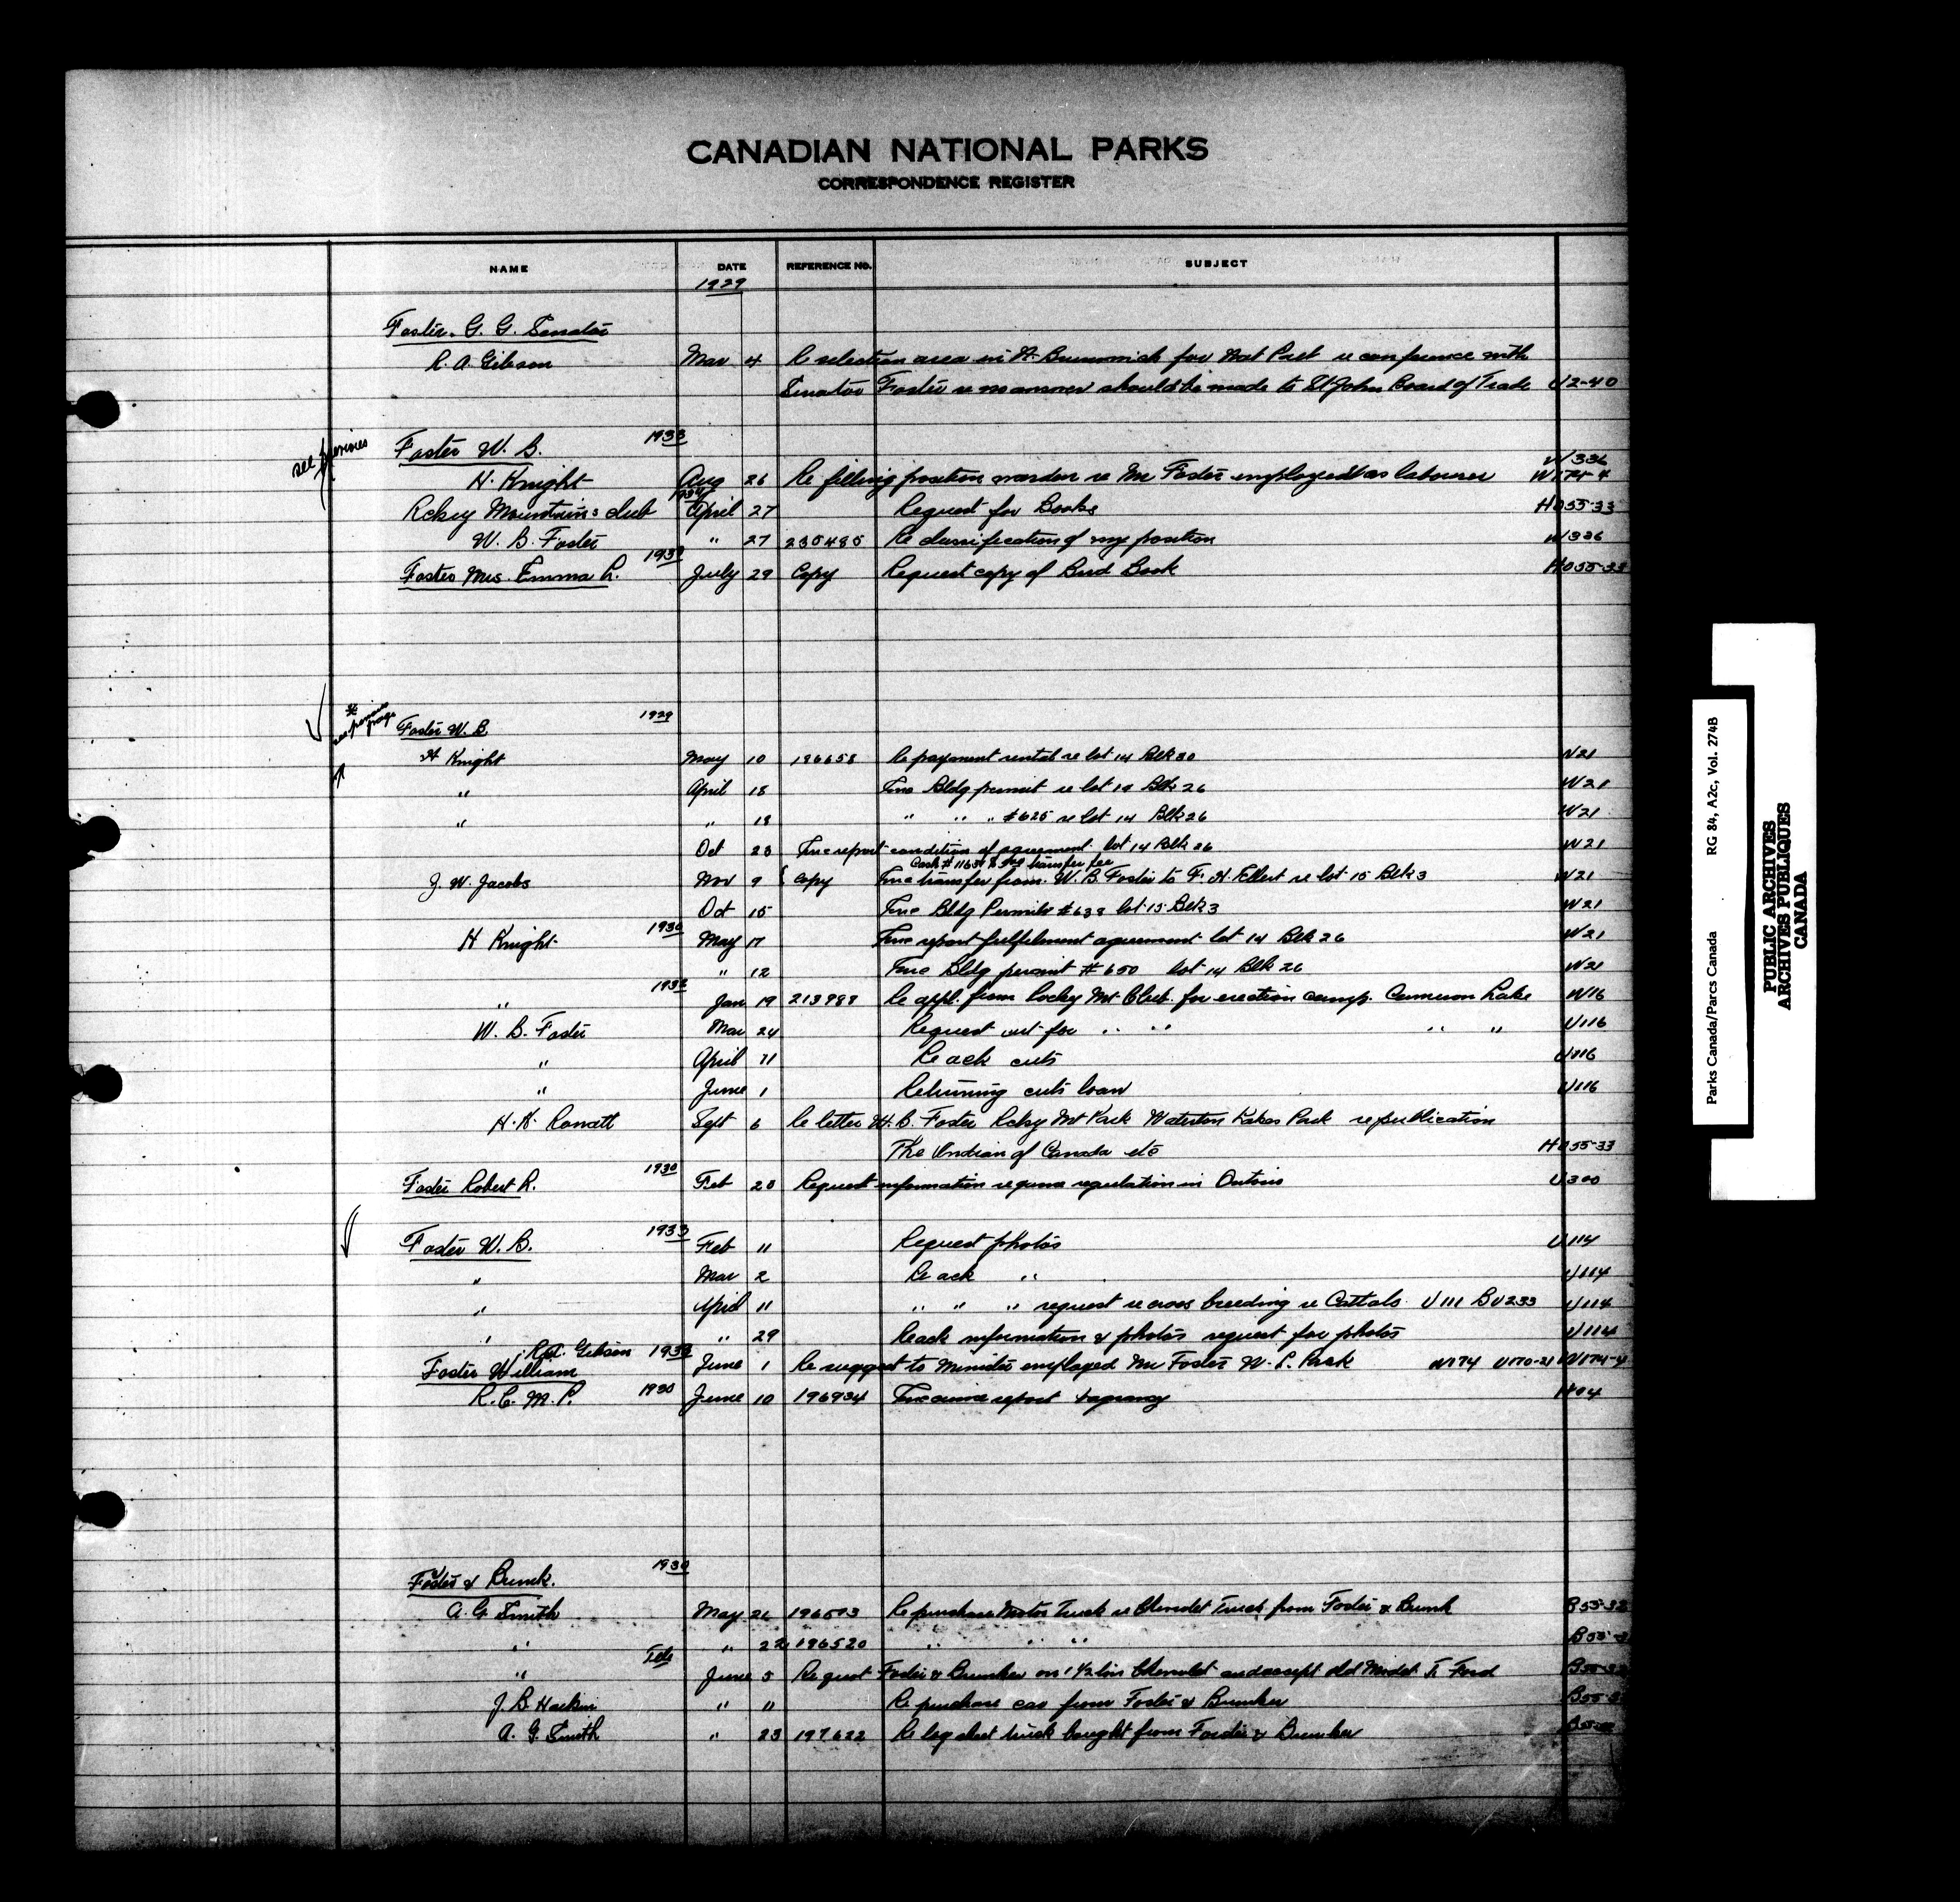 CANADIAN NATIONAL PARKS
CORRESPONDENCE REGISTER
NAME DATE REFERENCE NO. SUBJECT
1929
Foster. G. G. Senator
R. A. Gibson Mar 4 Re selection area in N. Brunswick for Nat Park re conference with
Senator Foster re should be made to St John Board of Trade U2-40
see previous
Foster W. B. 1933
W336
H. Knight Aug 26 Re filling position warden re Mr Foster employed as labourer W174-4
1934
Rocky Mountains club April 27 Request for Books H055-33
W. B. Foster " 27 235485 Re classification of my position W336
Foster Mrs. Emma R. July 29 Copy Request copy of Bird Book H055-33
see previous page
Foster W. B. 1929
H Knight May 10 186658 Re payment rental re lot 14 Blk 30 W21
" April 18 Enc Bldg permit re lot 14 Blk 26 W21
" " 18 " " " #625 re lot 14 Blk 26 W21
Oct 23 Enc report condition of agreement lot 14 Blk 26 W21
transfer fee
J. W. Jacobs Nov 9 Copy Enc transfer from W. B. Foster to F. H. Ellert re lot 15 Blk 3 W21
Oct 15 Enc Bldg Permit #638 lot 15 Blk 3 W21
H Knight 1930 May 17 Enc report fulfilment agreement lot 14 Blk 26 W21
" 12 Enc Bldg permit #650 lot 14 Blk 26 W21
" Jan 19 213988 Re appl. from Rocky Mt Club for erection camp. Cameron Lake W16
W. B. Foster Mar 24 Request cut for " " " " U116
" April 11 Re ack cuts U116
" June 1 Returning cuts loan U116
H. H. Rowatt Sept 6 Re letter W. B. Foster Rcky Mt Park Waterton Lakes Park re publication
The Indian of Canada etc H055-33
Foster Robert R. 1930 Feb 20 Request information re game regulation in Ontario U300
Foster W. B. 1933 Feb 11 Request photos U114
" Mar 2 Re ack " U114
" April 11 " " " request re cross breeding re Cattalo U111 BU233 U114
" " 29 Re ack information & photos request for photos U114
R.A. Gibson June 1 Re suggest to Minister employed Mr Foster W. L. Park W174 U170-21 W174-4
Foster William
R. C. M. P. 1930 June 10 196934 Enc crime report vagrancy H04
Foster & Bunk. 1930
A. G. Smith May 26 196593 Re purchase Motor Truck re Chevrolet Truck from Foster & Bunk B55-32
" " 22 196520 " " "
" Tele June 5 Re quot Foster & Bunker on 1 1/2 ton Chevrolet and accept old Model T Ford
J. B. Harkin " 11 Re purchase car from Foster & Bunker
A. G. Smith " 23 197622 Re truck bought from Foster & Bunker
Parks Canada/Parcs Canada RG 84, A2c, Vol. 274B
PUBLIC ARCHIVES
ARCHIVES PUBLIQUES
CANADA